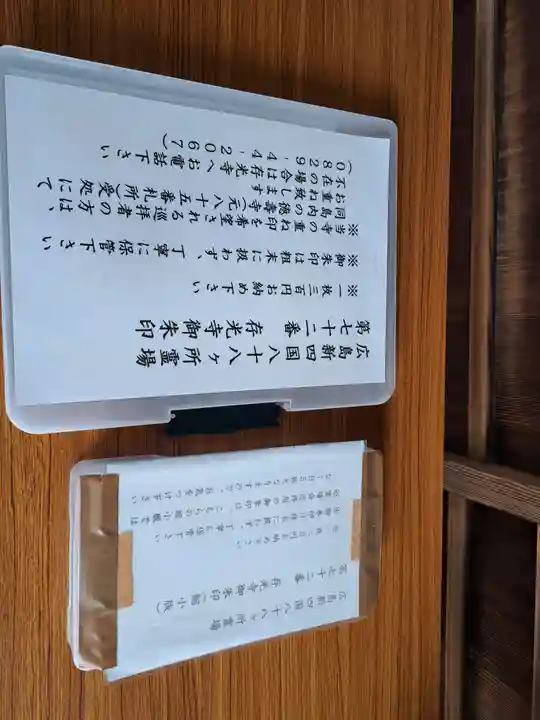 広島新四国八十八ヶ所霊場
第七十二番 存光寺御朱印
※一枚三百円お納め下さい
※御朱印は粗末に扱わず、丁寧に保管下さい
※当寺の重ね印を希望される巡拝者の方は、
同島内の徳壽寺(元八十五番札所)受処にて
お重ね致します
不在の場合は存光寺へお電話下さい
(0829・44・2067)
広島新四国八十八ヶ所霊場
第七十二番 存光寺御朱印(縮小版)